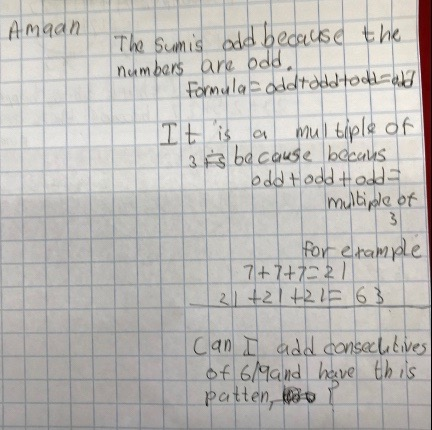 Amaan
The sum is odd because the
numbers are odd.
Formula = odd+odd+odd=odd
It is a multiple of
3 because becaus
odd+odd+odd=
multiple of
3
for example
7+7+7=21
21+21+21= 63
Can I add consecutives
of 6/9 and have this
patten, ?